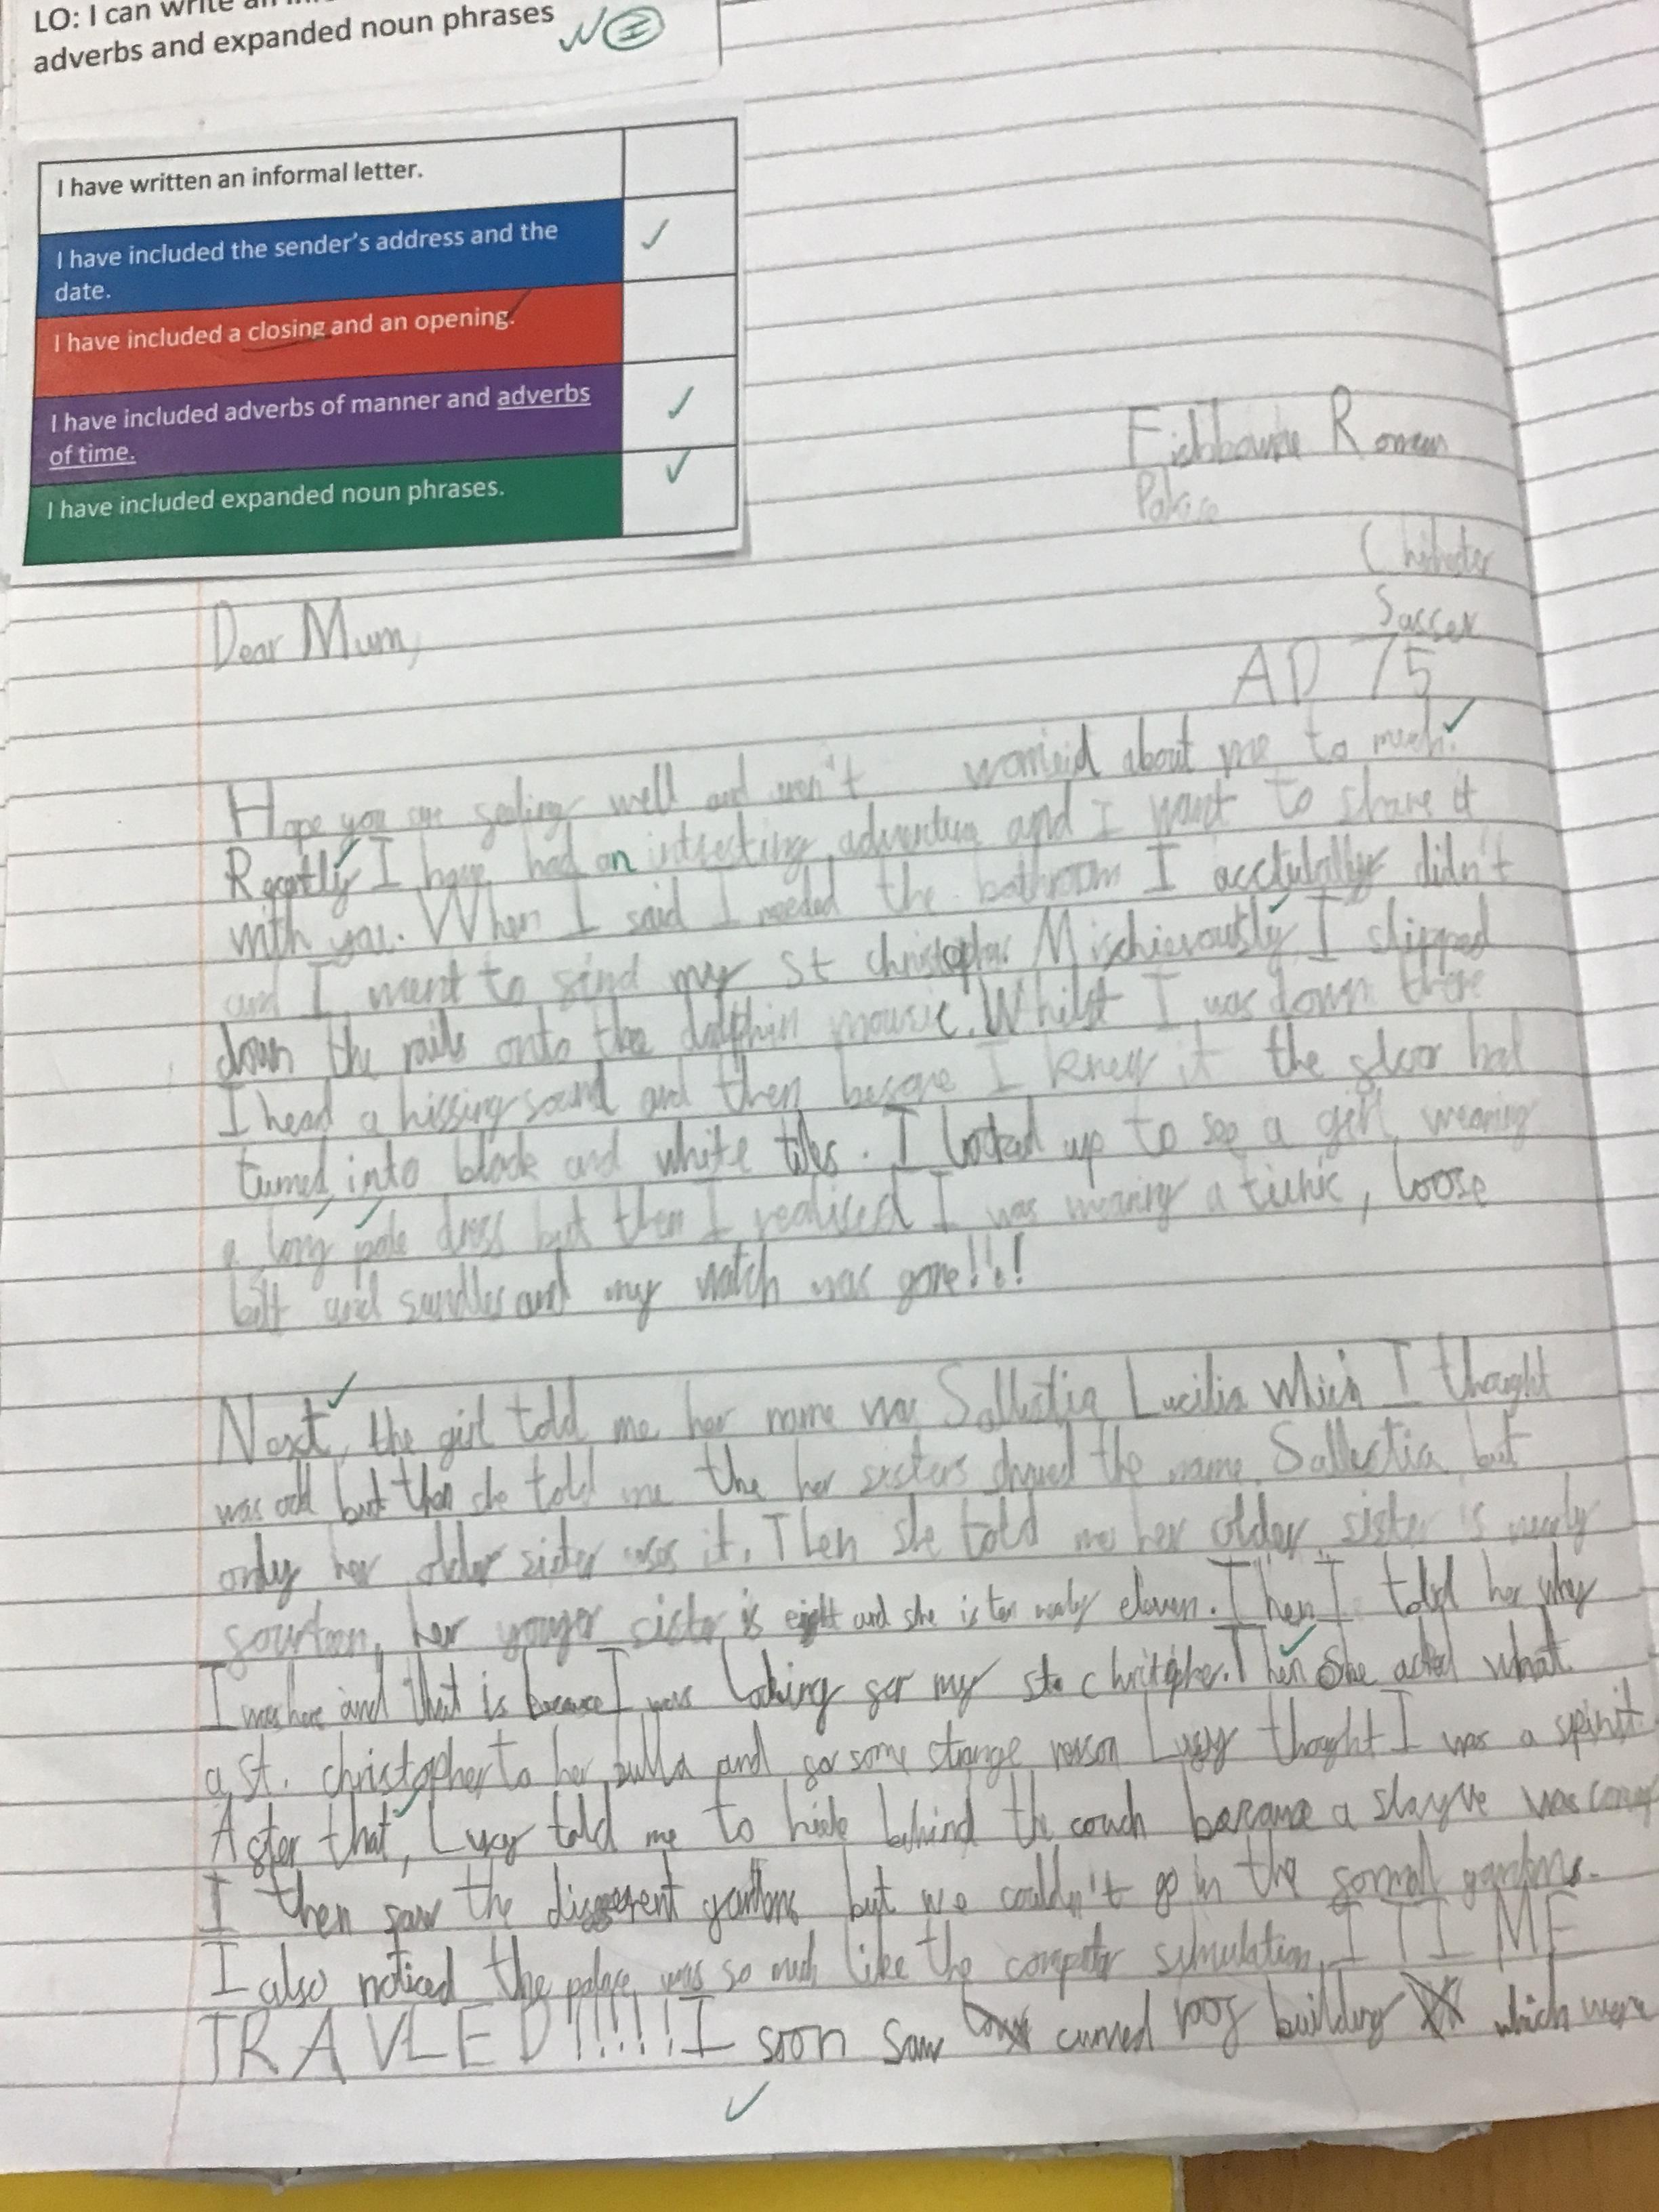 LO: I can write an
adverbs and expanded noun phrases
I have written an informal letter.
I have included the sender's address and the
date.
I have included a closing and an opening.
I have included adverbs of manner and adverbs
of time.
I have included expanded noun phrases.
Fishbourne Roman
Palace
Chichester
Sussex
AD 75
Dear Mum,
Hope you are feeling well and aren't worrieid about me to much.
Recently I have had an intresting adventure and I want to share it
with you. When I said I needed the bathroom I acctulally didn't
and I went to find my St christopher. Mischievously, I slipped
down the rails onto the dolphin mousic. Whilst I was down there
I head a hissing sound and then before I knew it the floor had
turned into black and white tiles. I looked up to see a girl wearing
a long, pale dress but then I realised I was wearing a tunic, loose
belt and sandles and my watch was gone!!!
Next, the girl told me her name was Sallustia Lucilia which I thought
was odd but then she told me the her sisters shared the name Sallustia but
only her older sister uses it. Then she told me her older sister is nearly
fourteen, her younger sister is eight and she is ten nearly eleven. Then I told her why
I was here and that is because I was looking for my st. christopher. Then she asked what
a st. christopher to her bulla and for some strange reson Lucy thought I was a spirit.
After that, Lucy told me to hide behind the couch because a slayve was coming
I then saw the different gardens but we couldn't go in the formal gardens.
I also noticed the palace was so much like the computer simulation. I TIME
TRAVLED!!!!! I soon saw curved roof building which were